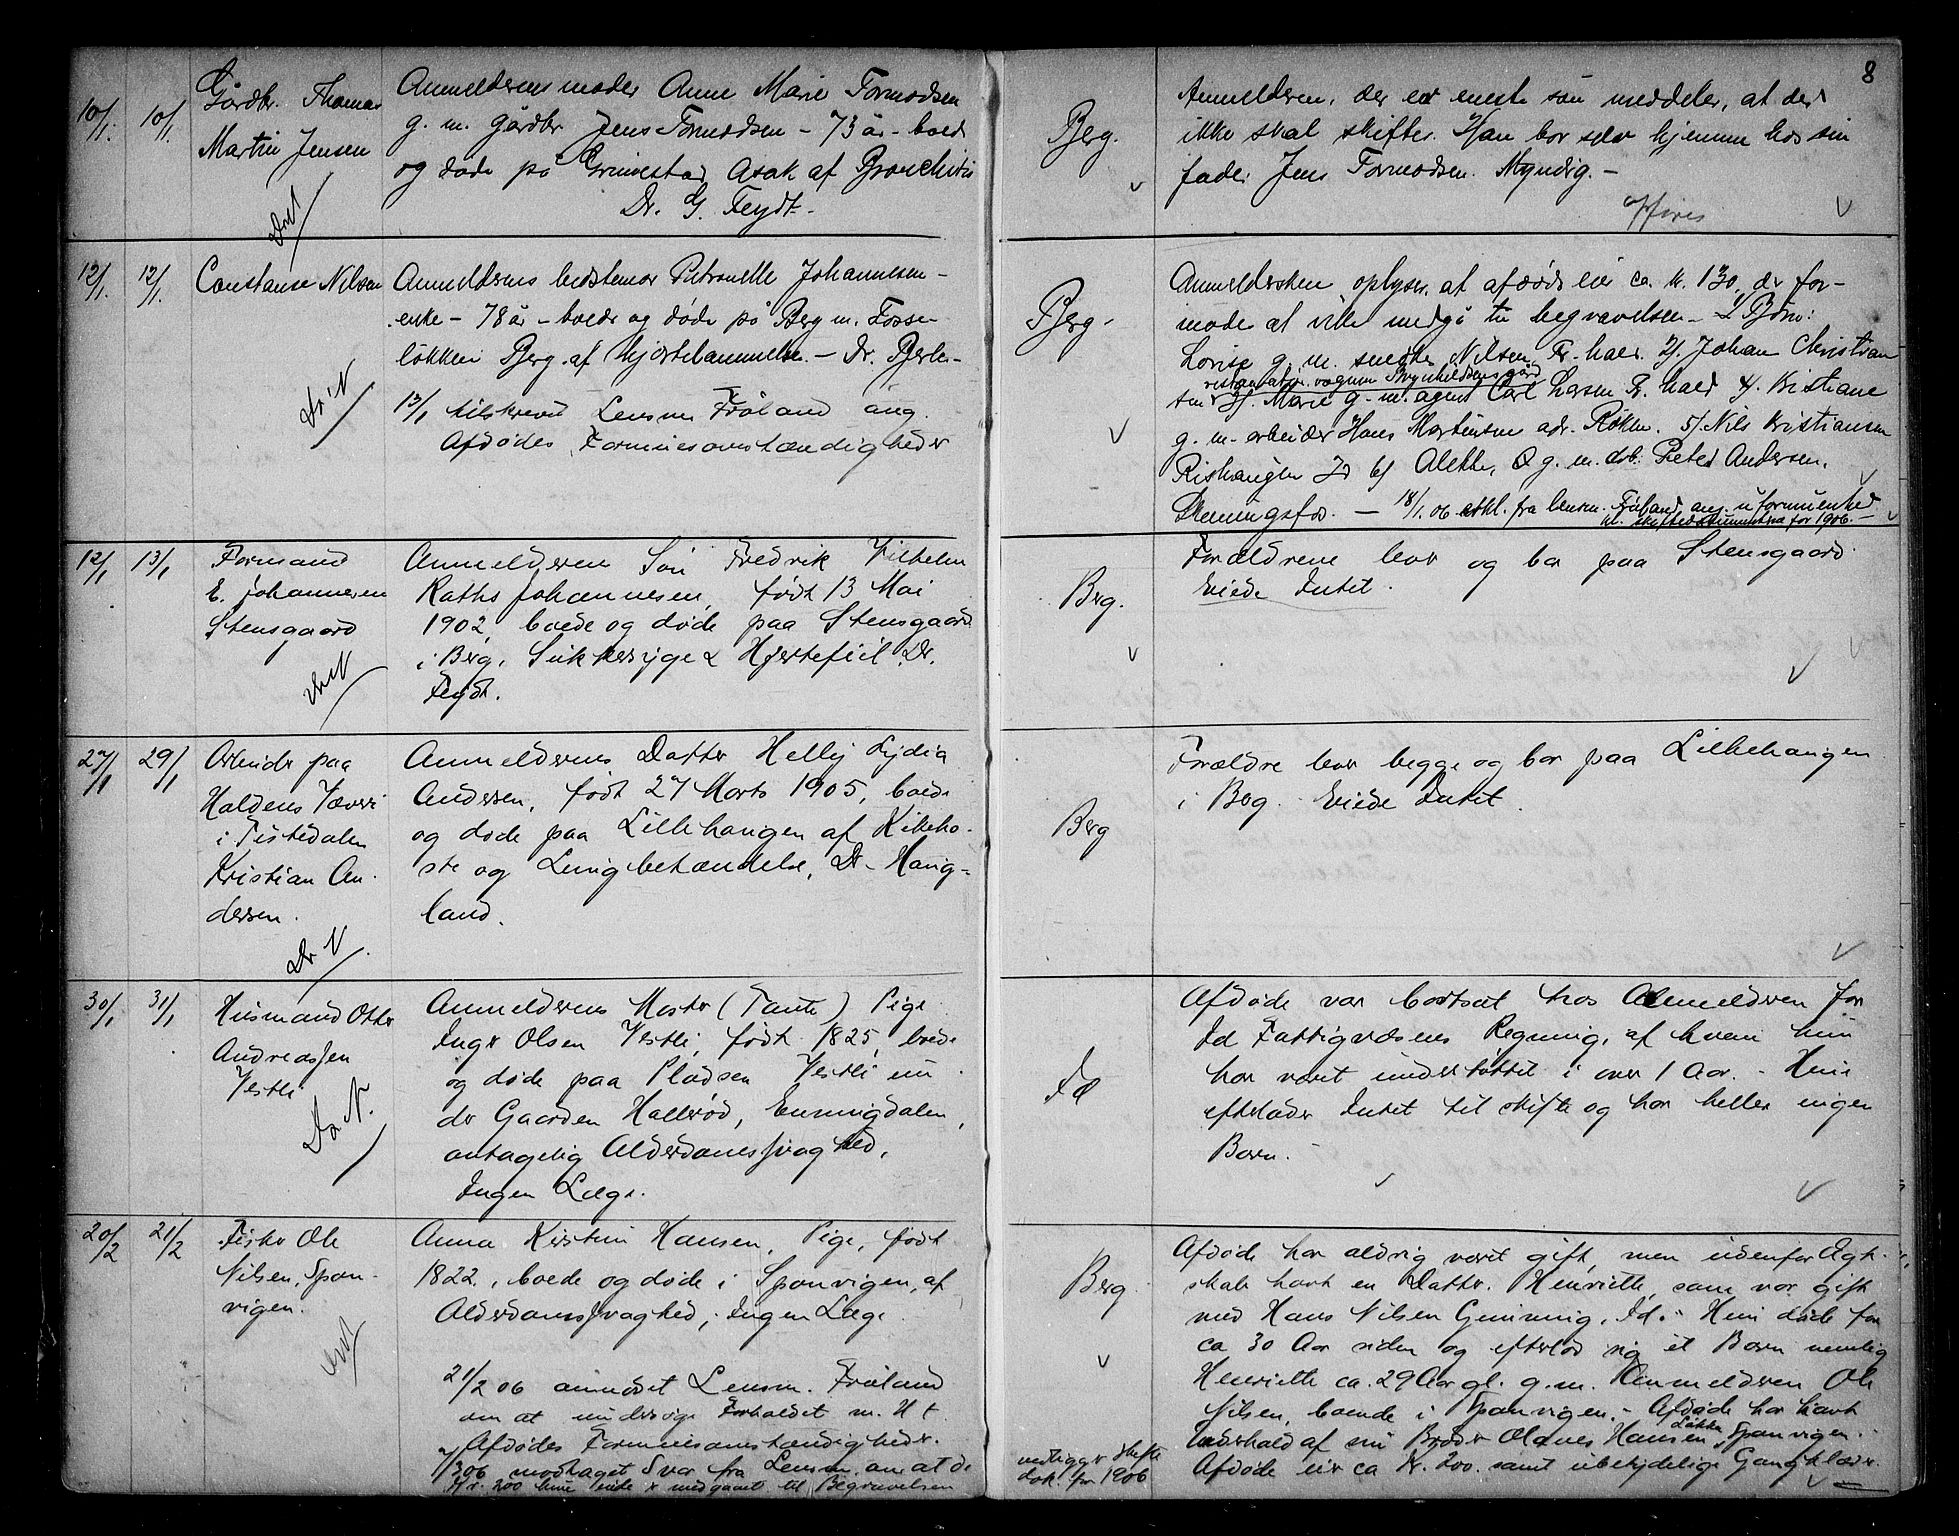 8
10/1. 10/1 Gårdbr. Thomas
Martin Jensen
Anmelderens moder Anne Marie Tormodsen
g. m. gårdbr Jens Tormodsen – 73 år – boede
og døde på Grimestad, Asak af Bronchitis
Dr. G. Feydt.
Berg.
Anmelderen, der er eneste søn meddeler, at der
ikke skal skiftes. Han bor selv hjemme hos sin
fader Jens Tormodsen. Myndig. –
12/1. 12/1. Constanse Nilsen
Anmelderens bedstemor Petronelle Johannesen –
enke – 78 år – boede og døde på Berg m. Fosse-
løkken Berg. af hjertelammelse. – Dr. Bjerke-
13/1 tilskrevet Lensm Frøland ang.
Afdødes Formuesomstændigheder
Berg.
Anmeldersken oplyser, at afdøde eier ca. kr. 130, der for-
mode at ville medgå til begravelsen. – Børn:
Lovise g. m. smed Nilsen, Fr.hald. 2/ Johan Christian
restauratør vognm Brynhildsens gård
sen 3/. Marie g. m. agent Carl Larsen F.hald 4/ Kristiane
g. m. arbeider Hans Mortensen adr. Rokke. 5/ Nils Kristiansen
Rishaugen Id 6/ Alette, g. m. arb. Peter Andersen,
Skenningsfos. – 18/1.06 erkl. fra lensm. Frøland ang. uformuenhed
vl. skiftedokumenterne for 1906. –
12/1 13/1 Formand
E. Johannesen
Stensgaard
Anmelderens Søn Fredrik Vilhelm
Raths Johannesen, født 13 Mai
1902, boede og døde paa Stensgaard
i Berg, Sukkersyge & Hjertefeil Dr.
Feydt.
Berg.
Forældrene lever og bor paa Stensgaard.
Eiede Intet.
27/1 29/1 Arbeider paa
Haldens Væveri
i Tistedalen
Kristian An-
dersen.
Dr N
Anmelderens Datter Helly Lydia
Andersen, født 27 Marts 1905, boede
og døde paa Lillehaugen af Kikeho-
ste og Lungbetændelse, Dr. Haug-
land.
Berg
Forældre lever begge og bor paa Lillehaugen
i Berg. Eiede Intet.
30/1 31/1 Husmand Otter
Andreassen
Vestli
Dr N.
Anmelderens Moster (Tante) Pige
Inger Olsen Vestli, født 1825, boede
og døde paa Pladsen Vestli un-
der Gaarden Hallerød, Enningdalen,
antagelig Alderdomssvaghed,
Ingen Læge.
Id
Afdøde var bortsat hos Anmelderen for
Id Fattigvæsens Regning, af hvem hun
har været understøttet i over 1 Aar. – Hun
efterlader Intet til skifte og har heller ingen
Børn. –
20/2 21/2 Fisker Ole
Nilsen, Spon-
vigen.
Anna Kirstin Hansen, Pige, født
1822, boede og døde i Sponvigen, af
Alderdomssvaghed, Ingen Læge.
21/2 06 anmodet Lensm. Frøland
om at undersøge Forholdet m. H t
Afdødes Formuesomstændigheder.
7/3 06 modtaget Svar fra Lensm. om at de
Kr. 200 hun eiede er medgaaet til Begravelsen
Berg.
vedligger skifte
dok. for 1906
Afdøde har aldrig været gift, men udenfor Ægte-
skab havt en Datter. Henriette, som var gift
med Hans Nilsen Genning, Id. – Hun døde for
ca 30 Aar siden og efterlod sig et Barn nemlig
Henriette ca. 29 Aar gl. g. m. Anmelderen Ole
Nilsen, boende i Sponvigen. – Afdøde har havt
Løkken
Underhold af sin Broder Hansen, Sponvigen. –
Afdøde eier ca Kr. 200. samt ubetydelige Gangklæder.